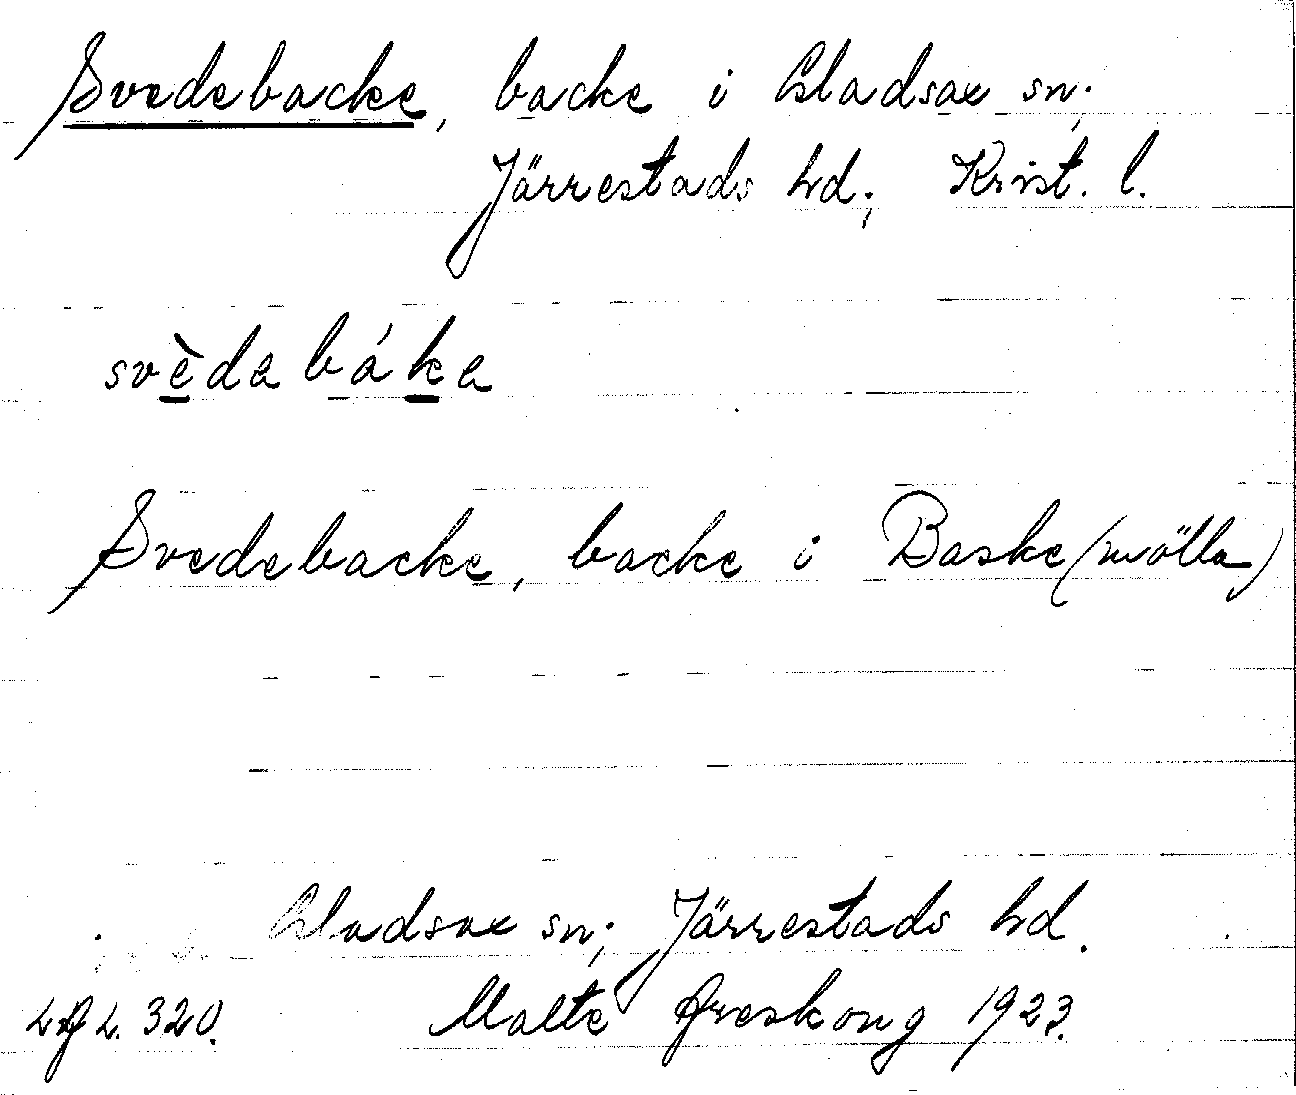 Svedebacke, backe i Gladsax sn;
Järrestads hd; Krist. l.
svèdabáka
Svedebacke, backe i Baske(mölla)
Gladsax sn; Järrestads hd.
320. Malte Areskoug 1923.